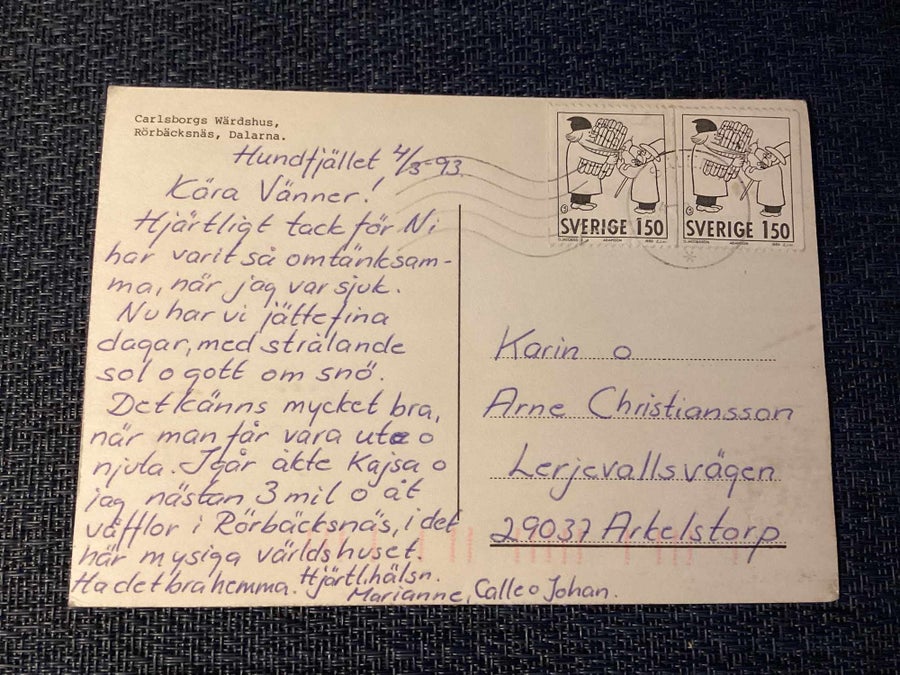 Carlsborgs Wärdshus,
Rörbäcksnäs, Dalarna.
Hundfjället 4/3-93.
Kära Vänner!
Hjärtligt tack för Ni
har varit så omtänksam-
ma, när jag var sjuk.
Nu har vi jättefina
dagar, med strålande
sol o gott om snö.
Det känns mycket bra,
när man får vara ute o
njuta. Igår åkte Kajsa o
jag nästan 3 mil o åt
våfflor i Rörbäcksnäs, i det
här mysiga världshuset.
Ha det bra hemma. Hjärtl. hälsn.
Marianne, Calle o Johan.
SVERIGE 150
SVERIGE 150
Karin o
Arne Christiansson
Lerjevallsvägen
29037 Arkelstorp